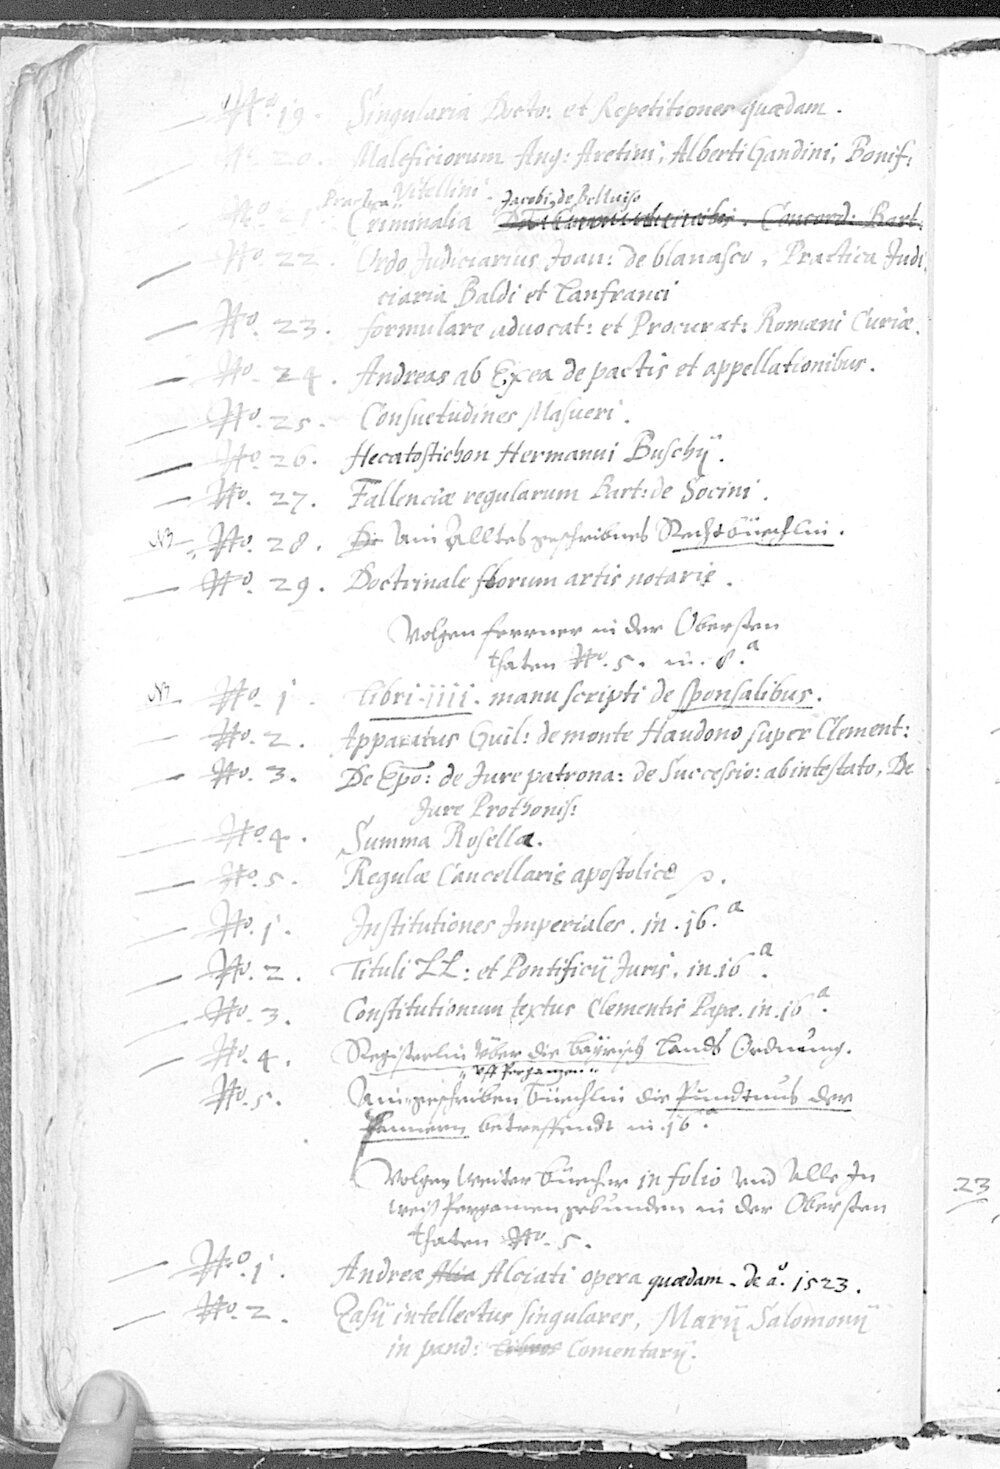 — No. 19. Singularia Doctor: et Repetitiones quædam.
— No. 20. Maleficiorum Ang: Aretini, Alberti Gandini, Bonif:
Vitellini.
Practica Jacobi de Belluiso
No. 21. Criminalia Concord: Bart:
— No. 22. Ordo Judiciarius Joan: de blanasco, Practica Judi
ciaria Baldi et Lanfranci
— No. 23. formulare advocat: et Procurat: Romani Curiæ.
— No. 24. Andreas ab Exea de pactis et appellationibus.
— No. 25. Consuetudines Masueri.
— No. 26. Hecatostichon Hermanni Buschÿ.
— No. 27. Fallenciæ regularum Bart: de Socini.
NB — No. 28. De Ain Alltes geschribnes Rechtbüechlin.
— No. 29. Doctrinale florum artis notarie.
Volgen ferrner in der Obersten
thaten No. 5. in. 8.a
NB — No. 1. Libri iiii. manuscripti de sponsalibus.
— No. 2. Apparatus Guil: de monte Haudono super Clement:
— No. 3. De Epo: de Jure patrona: de Successio: ab intestato, De
Jure Prothonis:
— No. 4. Summa Rosella.
— No. 5. Regulæ Cancellarie apostolice
— No. 1. Institutiones Imperiales. in. 16.a
— No. 2. Tituli LL: et Pontificij Juris, in. 16a.
— No. 3. Constitutionum textus Clementis Papæ. in. 16a.
— No. 4. Registerlin über die Bayrisch Lands Ordnung.
uff Pergamen
No. 5. Ain geschriben büechlin die Pundtnus der
betreffendt in. 16.a
Volgen weiter büecher in folio und alle In
weiß Pergamen gebunden in der Obersten
thaten No. 5.
— No. 1. Andreæ Alcia Alciati opera quædam. de ao. 1523.
— No. 2. Zasÿ intellectus singulares, Marÿ Salomonÿ
in pand: Libros Comentarÿ.
23